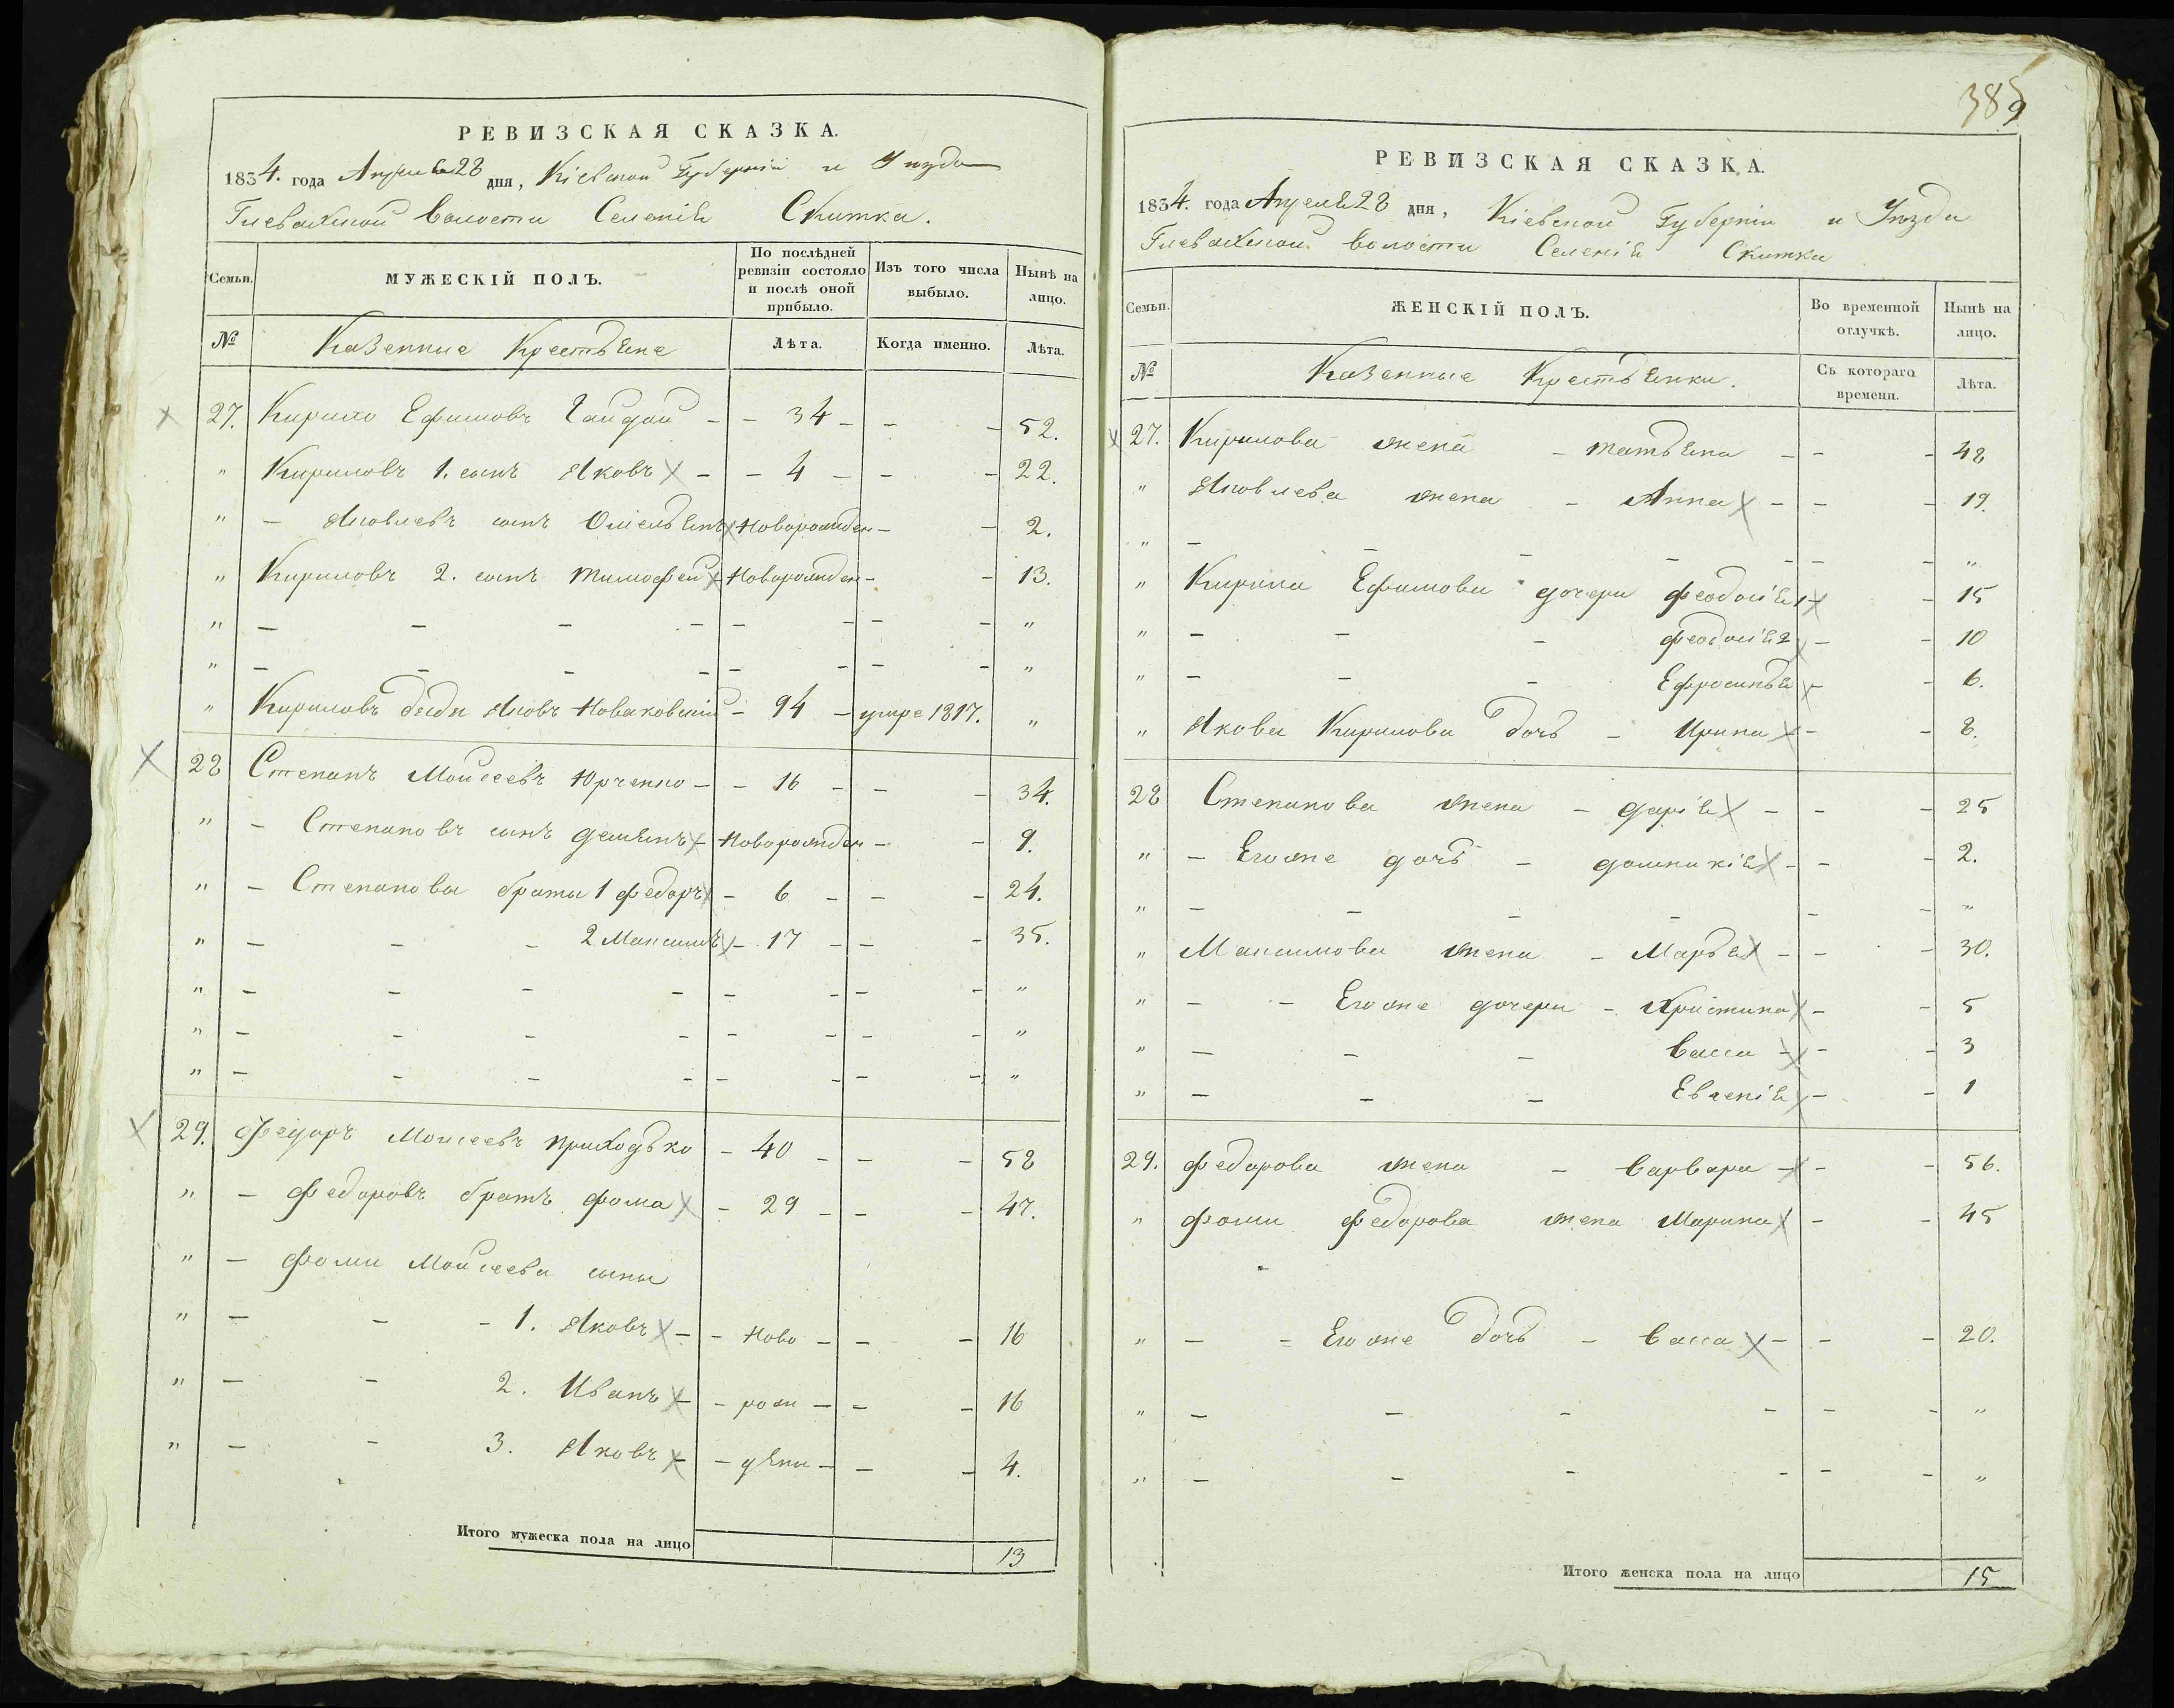 РЕВИЗСКАЯ СКАЗКА.
1834. года Апреля 28 дня, Кіевской Губерніи и Уезда
Глевахской волости Селенія Скитка.
Семьи. МУЖЕСКІЙ ПОЛЪ. По послѣдней ревизіи состояло и послѣ оной прибыло. Изъ того числа выбыло. Нынѣ на лицо.
№ Казенные Крестьяне Лѣта. Когда именно. Лѣта.
27. Кирило Ефимовъ Гайдай - - 34 - - - 52.
" Кириловъ 1. сынъ Яковъ - - 4 - - - 22.
" - Яковлевъ сынъ Омельянъ Новорожден - - 2.
" Кириловъ 2. сынъ Тимофей Новорожден - - 13.
" - - - - - - - - "
" - - - - - - - - "
" Кириловъ дядя Яковъ Новаковскій - 94 - умре 1817. "
28 Степанъ Моисеевъ Юрченко - - 16 - - - 34.
" - Степановъ сынъ Демянъ - Новорожден - - 9.
" - Степановы браты 1 Федоръ - 6 - - - 24.
" - - - 2 Максимъ - 17 - - - 35.
" - - - - - - - - "
" - - - - - - - - "
" - - - - - - - - "
29. Федоръ Моисеевъ Приходько - 40 - - - 58
" - Федоровъ братъ Фома - 29 - - - 47.
" - Фомы Моисеева сыны
" - - - 1. Яковъ - - Ново - - - 16
" - - 2. Иванъ - - рож - - - 16
" - - 3. Яковъ - - дени - - - 4.
Итого мужеска пола на лицо 13
385
9
РЕВИЗСКАЯ СКАЗКА.
1834. года Апреля 28 дня, Кіевской Губерніи и Уезда
Глевахской волости Селенія Скитки
Семьи. ЖЕНСКІЙ ПОЛЪ. Во временной отлучкѣ. Нынѣ на лицо.
№ Казенные Крестьянки. Съ котораго времени. Лѣта.
27. Кирилова жена - Татьяна - - - 48
" Яковлева жена - Анна - - - 19.
" - - - - - - - "
" Кирила Ефимова дочери Феодосія 1 - - 15
" - - - Феодосія 2 - - 10
" - - - Ефросинья - - 6.
" Якова Кирилова дочь - Ирина - - - 8.
28 Степанова жена - Дарія - - - 25
" - Его же дочь - Домникія - - - 2.
" - - - - - - "
" Максимова жена - Марья - - - 30.
" - - Его же дочери - Христина - - 5
" - - - Васса - - - 3
" - - - Евгенія - - 1
29. Федорова жена - Варвара - - - 56.
" Фомы Федорова жена Марина - - 45
" - - Его же дочь - Васса - - - 20.
" - - - - - - "
" - - - - - - "
Итого женска пола на лицо 15